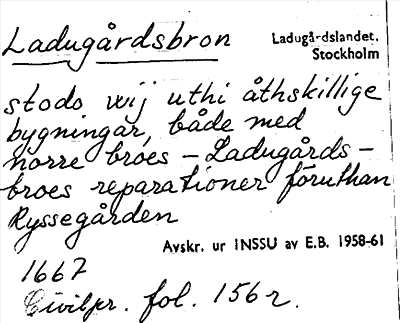 Ladugårdsbron
Ladugårdslandet.
Stockholm
stodo wij uthi åthskillige
bygningar, både med
norre broes – Ladugårds –
broes reparationer föruthan
Ryssegården
Avskr. ur INSSU av E.B. 1958-61
1667
Civilpr. fol. 156 r.